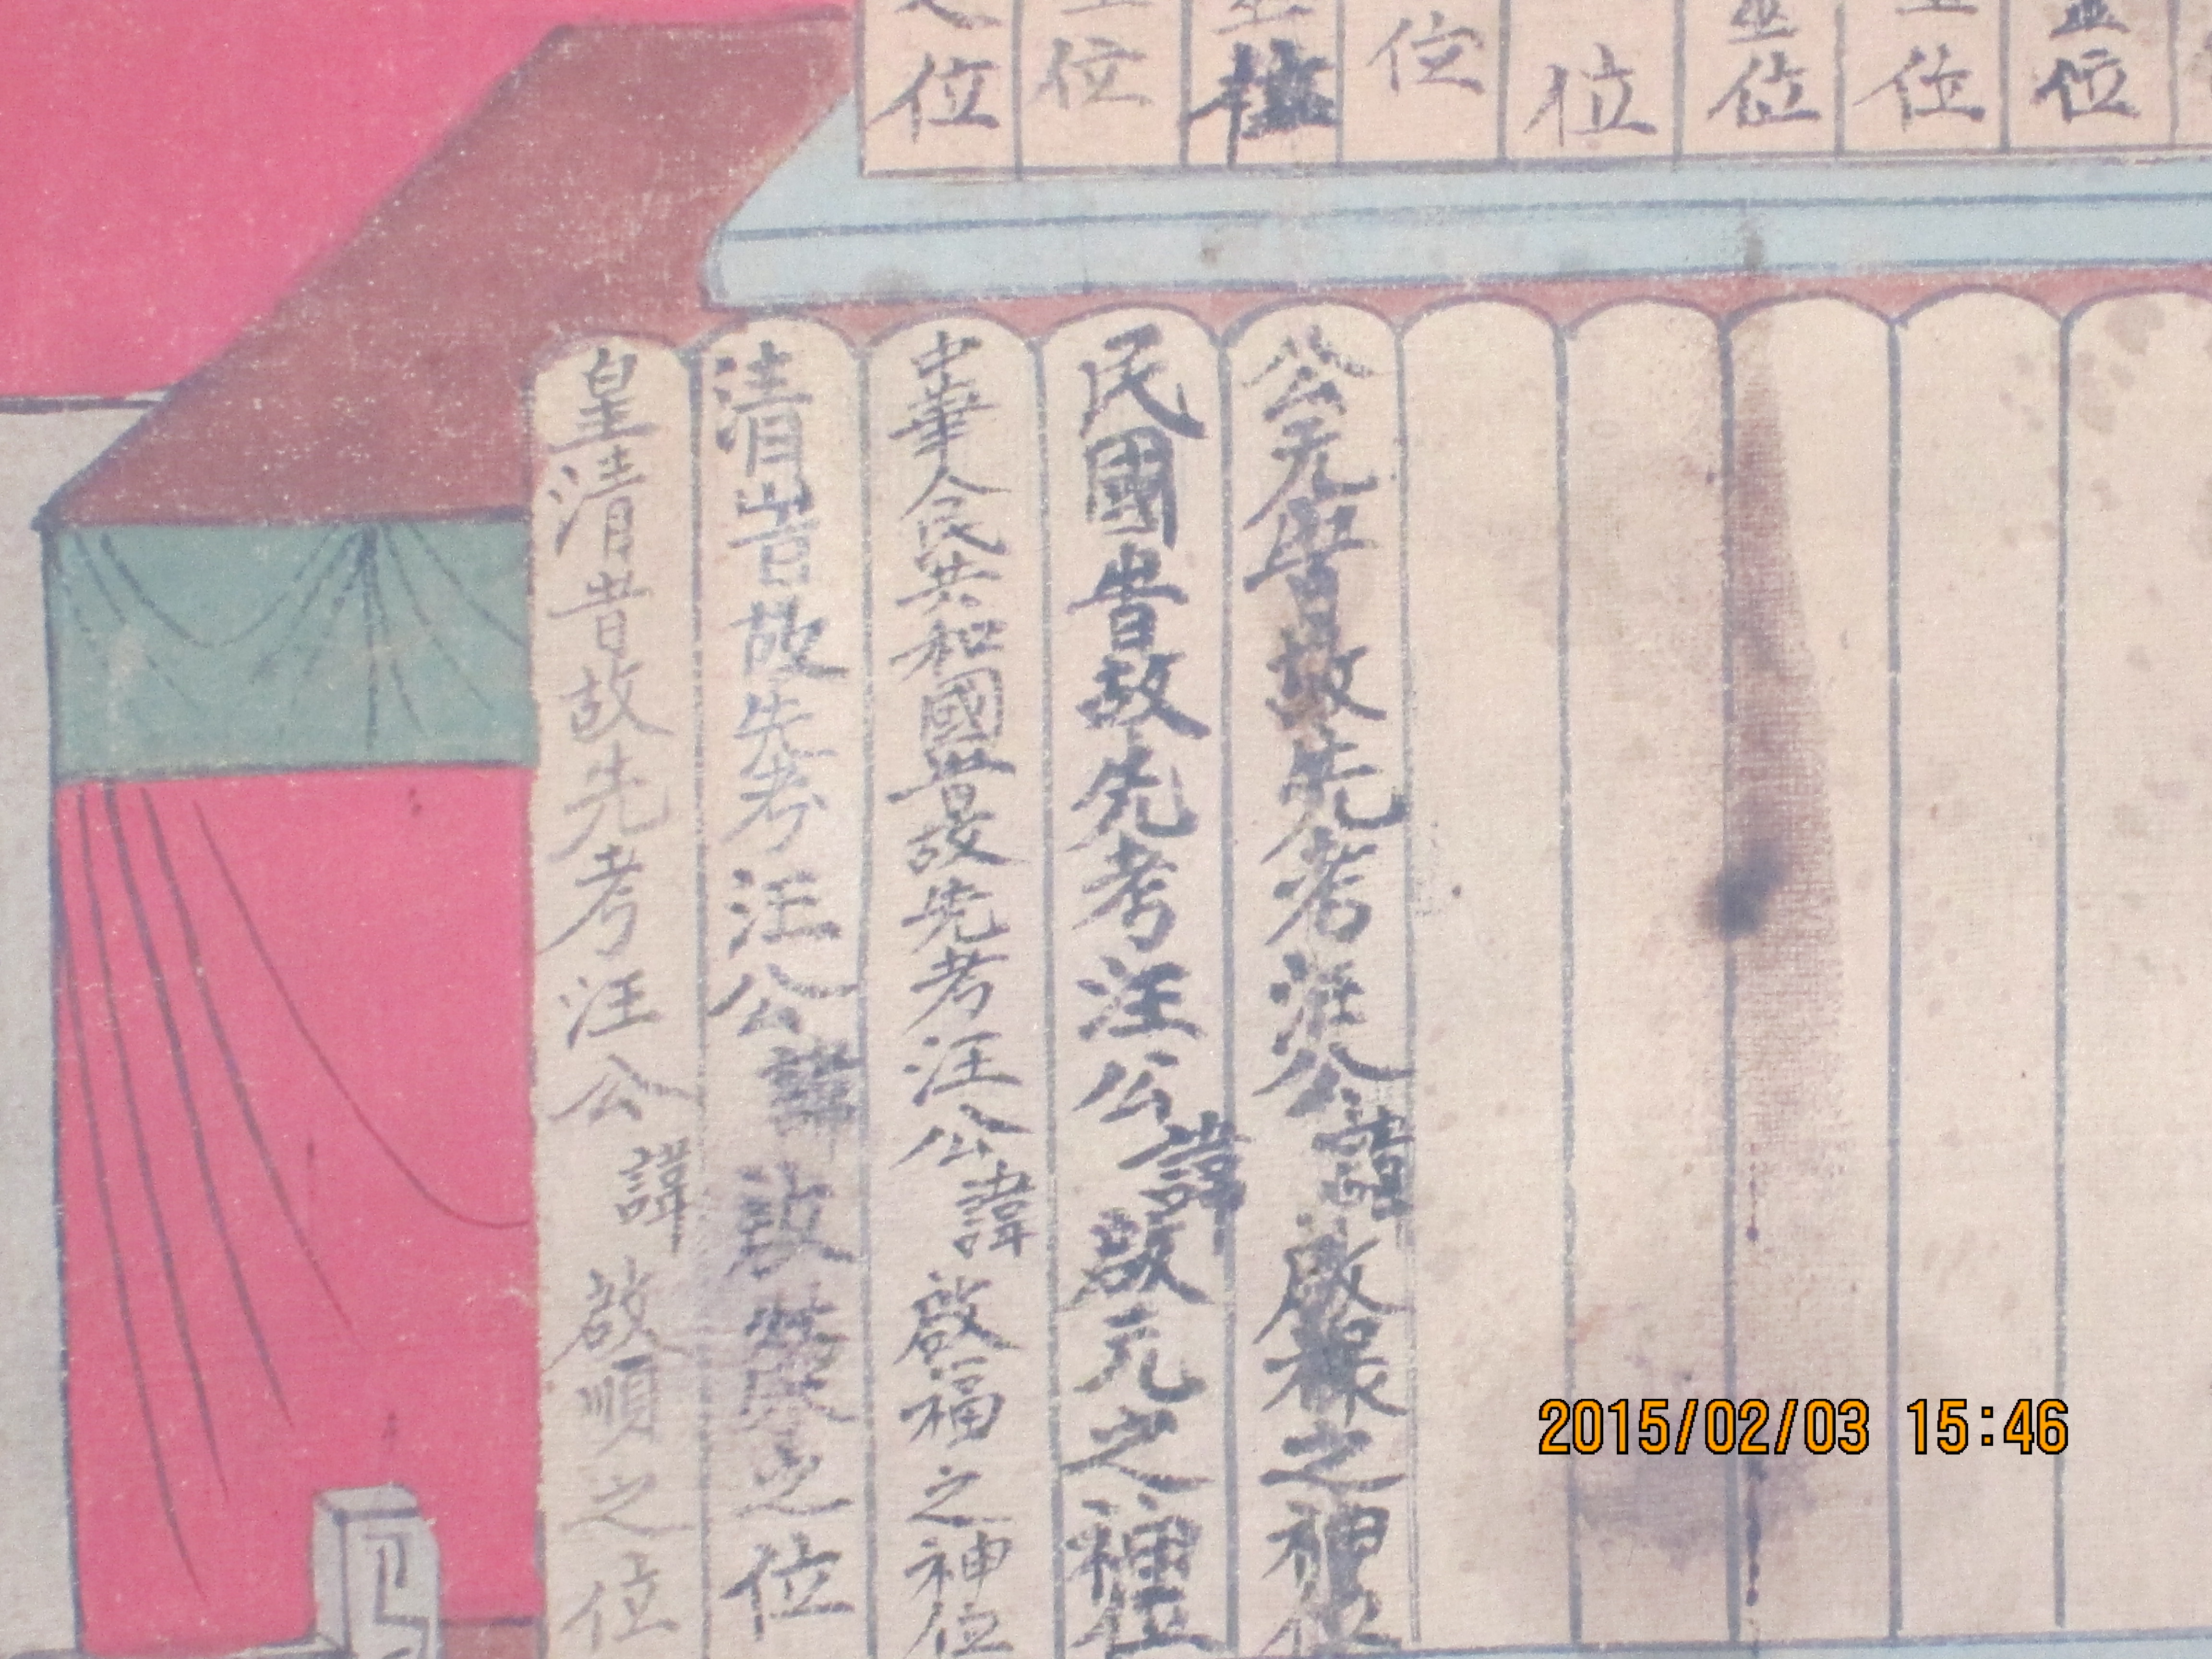 位
位
位
位
位
位
位
公元 昔故先考汪公諱啟祿之神位
民國昔故先考汪公諱啟元之神位
中華人民共和國昔故先考汪公諱啟福之神位
清昔故先考汪公諱啟 之位
皇清昔故先考汪公諱啟順之位
2015/02/03 15:46